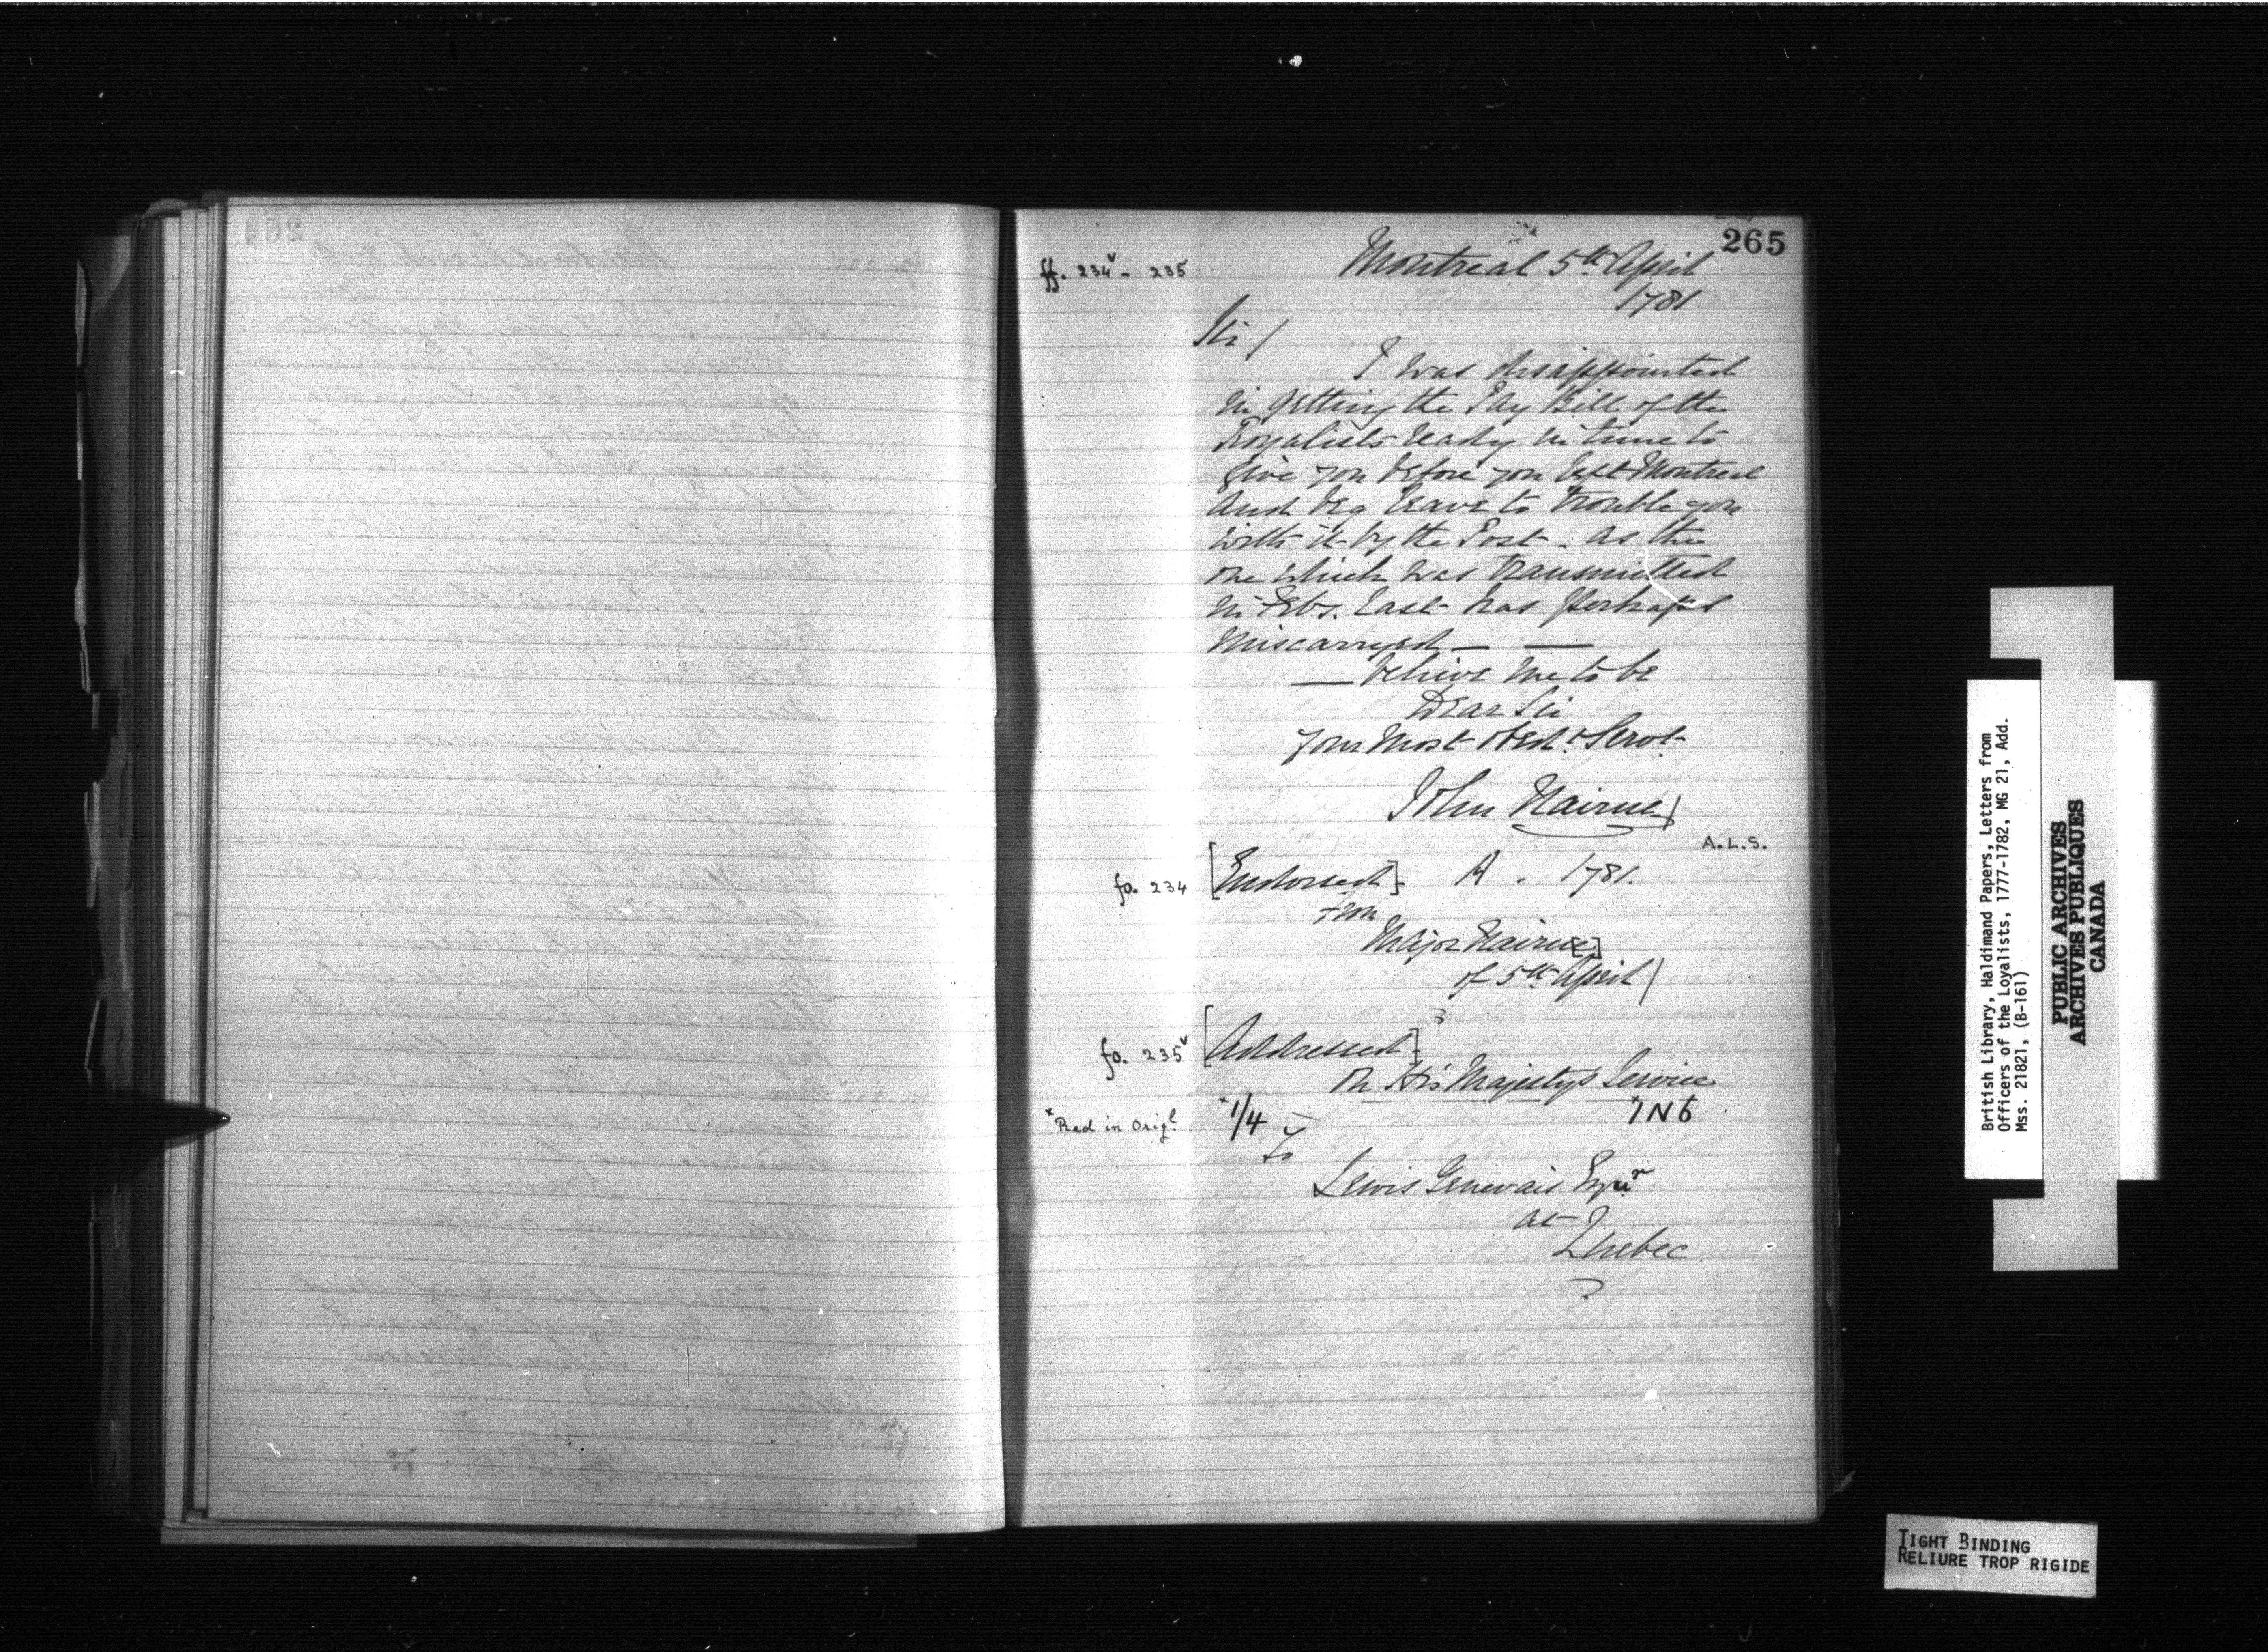 265
ff. 234v - 235
Montreal 5th April
1781.
Sir /
I was disappointed
in getting the Pay Bill of the
Royalists ready in time to
give you before you left Montreal
and beg leave to trouble you
with it by the Post - as the
one which was transmitted
in Feby. last has perhaps
miscarryed — —
— believe me to be
Dear Sir
your most obedt. Servt.
John Nairne /
A.L.S.
fo. 234 [Endorsed] A . 1781.
from
Major Nairn[e]
of 5th April /
fo. 235v [Addressed]
On His Majestys Service
* Red in Origl. *1/4 *1N6
To
Lewis Genevais Esqur
at
Quebec
British Library, Haldimand Papers, Letters from
Officers of the Loyalists, 1777-1782, MG 21, Add.
Mss. 21821, (B-161)
PUBLIC ARCHIVES
ARCHIVES PUBLIQUES
CANADA
TIGHT BINDING
RELIURE TROP RIGIDE